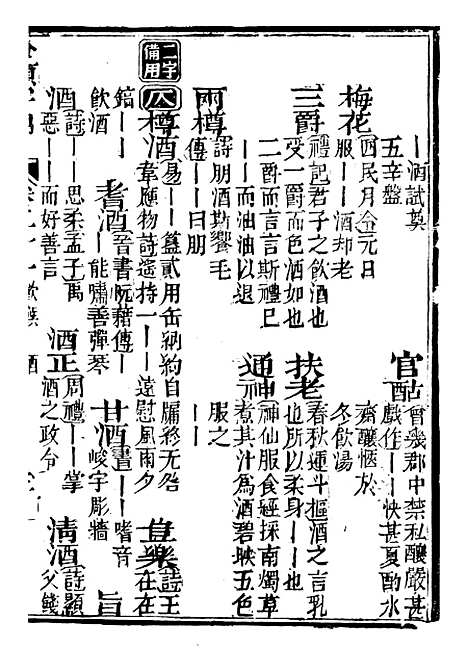 丨酒試奠
五辛盤
官酤
曾幾郡中禁私釀嚴甚
戲作丨丨快甚夏酌水
冬飲湯
齋釀愜於
梅花
四民月令元日
服丨丨酒却老
三爵
禮記君子之飲酒也
受一爵而色酒如也
二爵而言言斯禮已
丨丨而油油以退
扶老
春秋運斗樞酒之言乳
也所以柔身丨丨
通神
神仙服食經採南燭草
煮其汁為酒碧映五色
服之
丨丨
兩樽
詩朋酒斯饗毛
傳丨丨曰朋
二字備用
仄
樽酒
易丨丨簋貳用缶納約自牖終无咎
韋應物詩遙持一丨丨遠慰風雨夕
豈樂
詩王
在在
鎬丨丨
飲酒
耆酒
晉書阮藉傳丨
丨能嘯善彈琴
甘酒
書丨丨嗜音
峻宇彫牆
旨
酒
詩丨丨思柔孟子禹
惡丨丨而好善言
酒正
周禮丨丨掌
酒之政令
清酒
詩顯
父餞